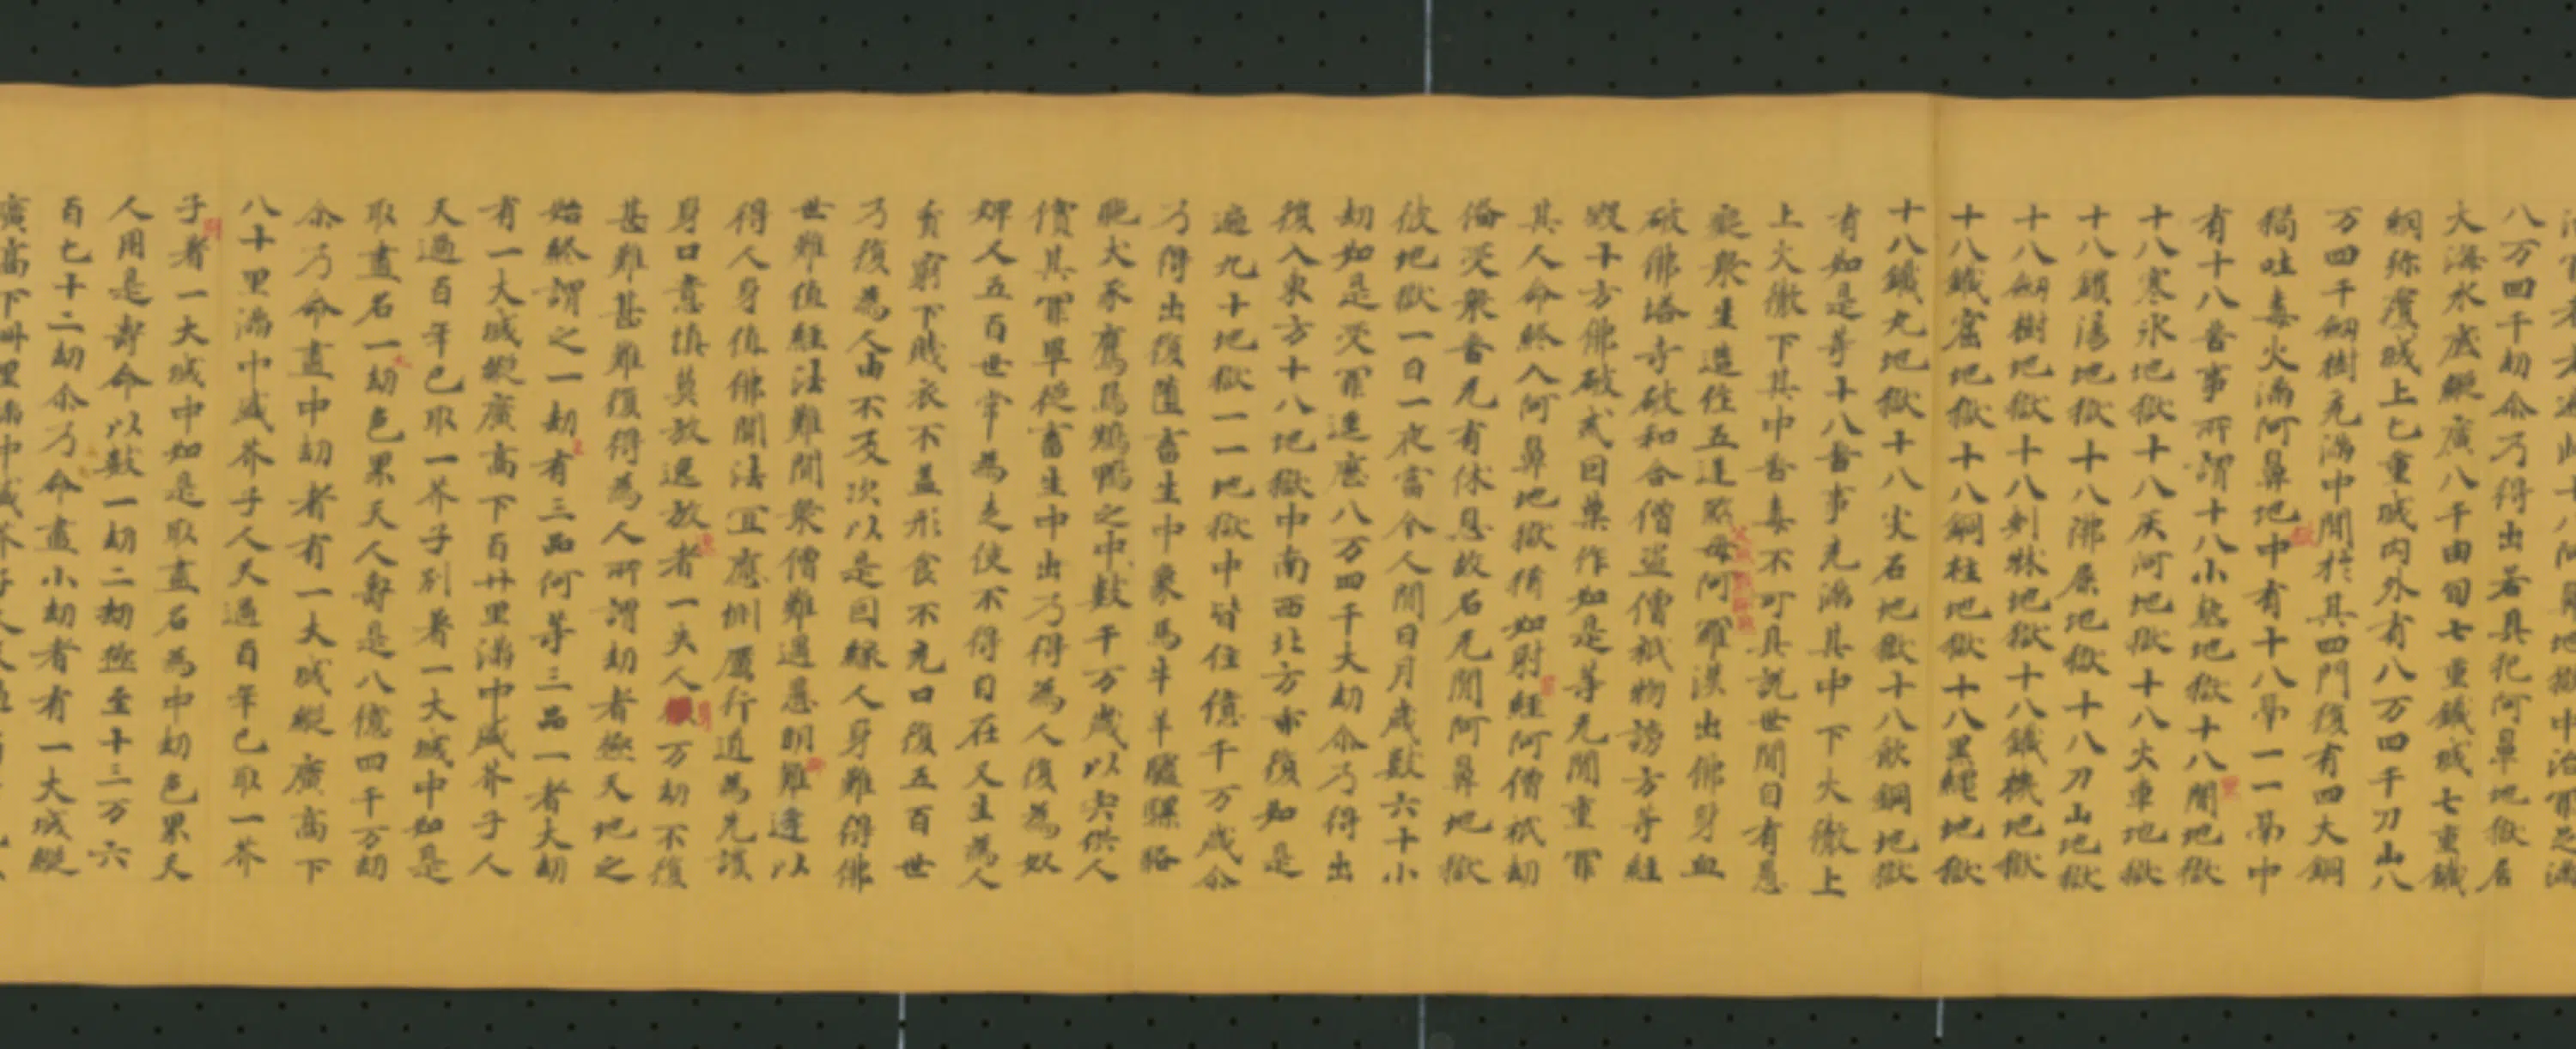 八万四千劫尒乃得出若具犯阿鼻地獄居
大海水底縱廣八千由旬七重鐵城七重鐵
網弥覆城上七重城内外有八万四千刀山八
万四千劒樹充滿中間於其四門復有四大銅
狗吐毒火滿阿鼻地中有十八鬲一一鬲中
有十八苦事所謂十八小熱地獄十八闇地獄
十八寒氷地獄十八灰河地獄十八火車地獄
十八鑊湯地獄十八沸屎地獄十八刀山地獄
十八劒樹地獄十八刺林地獄十八鐵機地獄
十八鐵窟地獄十八銅柱地獄十八黑繩地獄
十八鐵丸地獄十八尖石地獄十八飲銅地獄
有如是等十八苦事充滿其中下火徹上
上火徹下其中苦毒不可具説世間自有愚
癡衆生造作五逆煞母阿羅漢出佛身血
破佛塔寺破和合僧盜僧祇物謗方等經
毀十方佛破戒因菓作如是等无間重罪
其人命終入阿鼻地獄猗如射經阿僧祇劫
俻受衆苦无有休息故名无間阿鼻地獄
彼地獄一日一夜當今人間日月歲數六十小
劫如是受罪逕歷八万四千大劫尒乃得出
復入東方十八地獄中南西北方亦復如是
遍九十地獄一一地獄中皆住億千万歲尒
乃得出復墮畜生中象馬牛羊驢騾駱
駞犬豕鷹鳥鵝鴨之中數千万歲以宍供人
償其罪畢從畜生中出乃得為人復為奴
婢人五百世常為走使不得自在又生為人
貧窮下賤衣不盖形食不充口復五百世
乃復為人由不及次以是因緣人身難得佛
世難值經法難聞衆僧難遇愚明難逢以
得人身值佛聞法宜應惻厲行道為先護
身口意慎莫放逸放者一失人万劫不復
甚難甚難復得為人所謂劫者極天地之
始終謂之一劫有三品何等三品一者大劫
有一大城縱廣高下百廿里滿中盛芥子人
天過百年已取一芥子別著一大城中如是
取盡名一劫色界天人壽是八億四千万劫
尒乃命盡中劫者有一大城縱廣高下
八十里滿中盛芥子人天過百年已取一芥
子著一大城中如是取盡名為中劫色界天
人用是壽命以數一劫二劫極至十三万六
百七十二劫尒乃命盡小劫者有一大城縱